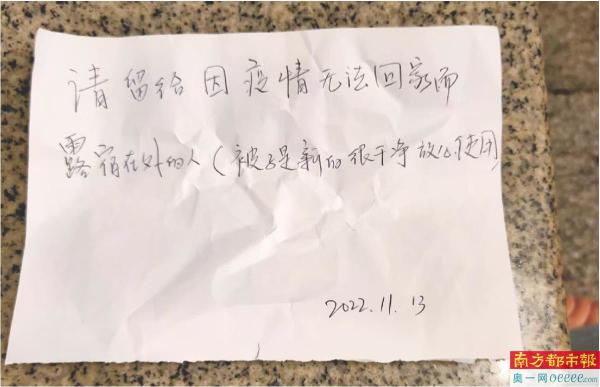 请留给因疫情无法回家而
露宿在外的人(被子是新的很干净放心使用
2022.11.13
南方都市報
奥一网oeeee.com